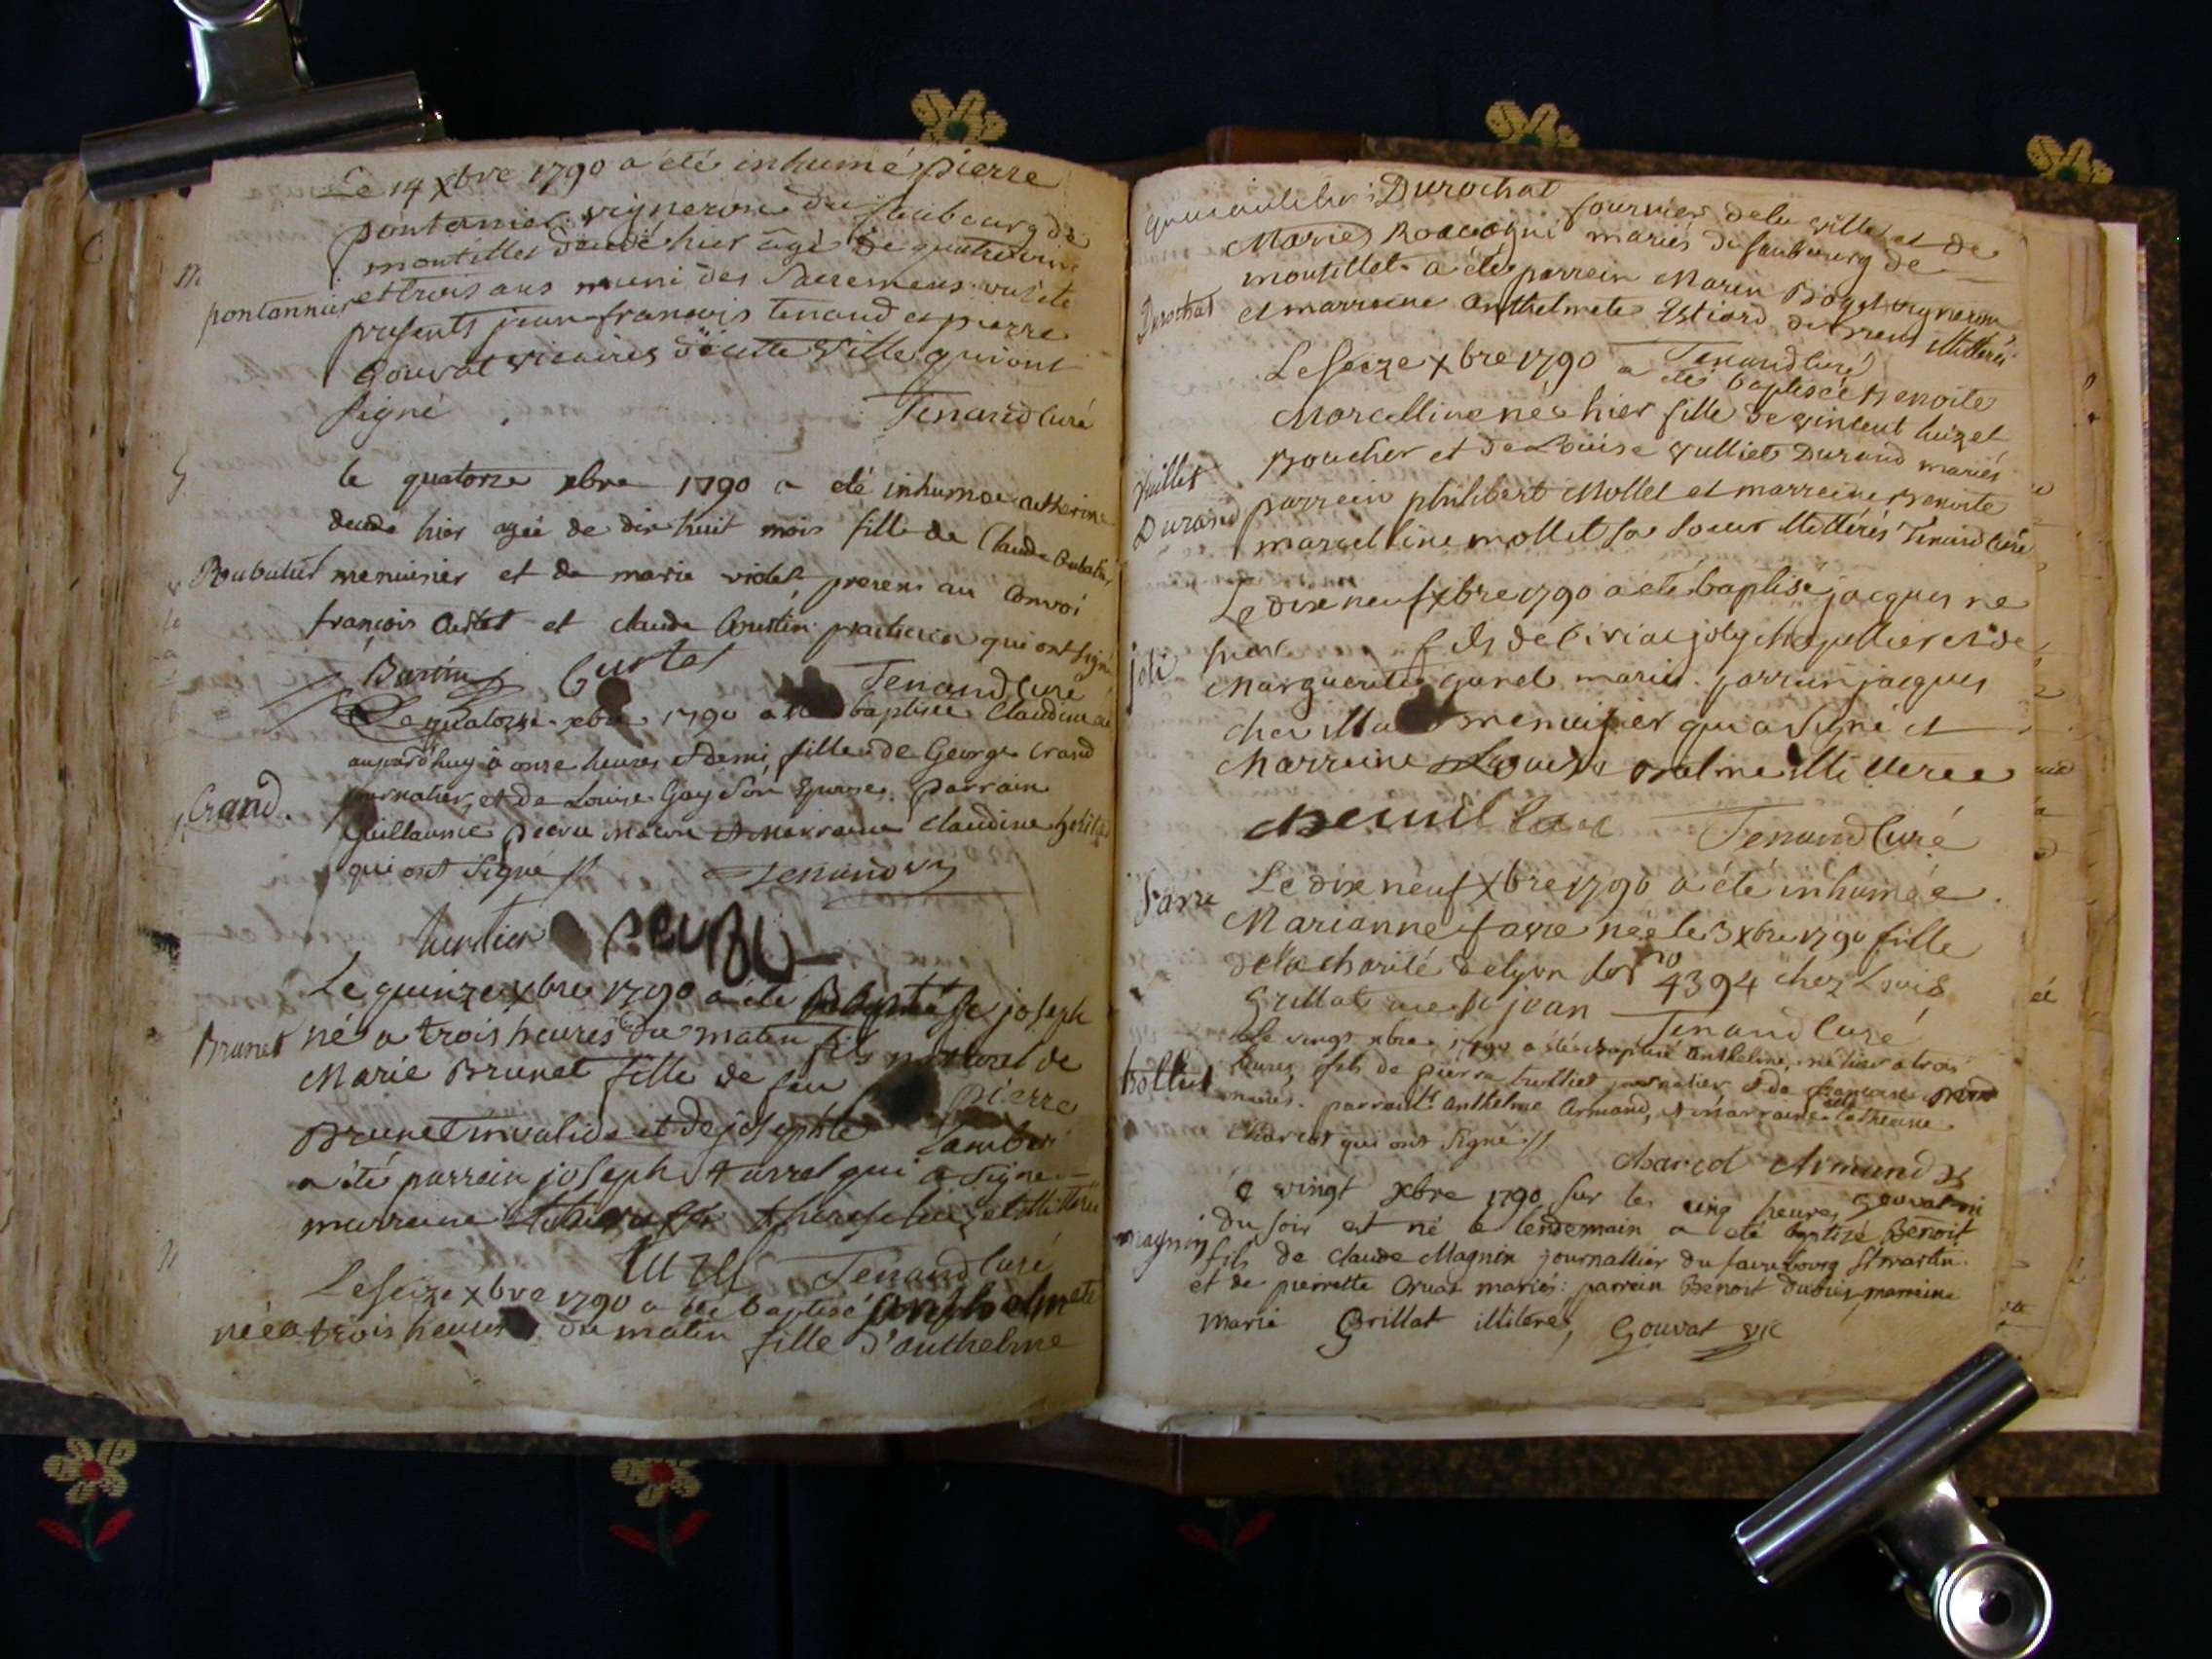 Le 14 xbre 1790 a été inhumé pierre
pontanier vigneron du faubourg de
montillet decedé hier âgé de quatrevint
pontannier
et trois ans muni des Sacremens ont été
presents jean francois tenand et pierre
Gouvat vicaires de cette ville qui ont
signé
Tenand Curé
le quatorze xbre 1790 a eté inhumee catherine
decede hier agée de dix huit mois fille de Claude
Roubatut
menuisier et de marie violet, presens au Convoi
françois Curtet et claude praticien qui ont signé
Curtet
Tenand Curé
Le quatorze xbre 1790 a baptisée Claudine née
aujourd'huy à onze heures et demi fille de George Crand
Crand.
journalier, et de Louise Gay Son Epouse. parrain
Guillaume macon et Marraine Claudine
qui ont Signé //
Tenand
Le quinze xbre 1790 a été joseph
Brunet
né a trois heures du matin fils naturel de
Marie Brunet fille de feu pierre
Brunet invalide et de josephte Lambert
a été parrein joseph turrel qui a signé
marreine therese huzel illiteree
Tenand Curé
Le seize xbre 1790 a été baptisé anthelmete
née a trois heures du matin fille d'anthelme
Durochat fournier de la ville et de
Marie mariés du faubourg de
montillet a été parrein Marin Boget vigneron
Durochat
et marreine anthelmete illitterés
Tenand Curé
Le seize xbre 1790 a été baptisée Benoite
Marcelline née hier fille de vincent huzel
Boucher et de Louise vulliet Durand mariés
vulliet
Durand
parrein philibert Mollet et marreine Benoite
marcelline mollet sa soeur illitterés Tenand Curé
Le dix neuf xbre 1790 a été baptisé jacques né
joli
hier fils de joly chapellier et de
Marguerite mariés. parrein jacques
menuisier qui a signé et
Marreine illiteree
Tenand Curé
Le dix neuf xbre 1790 a été inhumée
favre
Marianne favre née le 3 xbre 1790 fille
de la charité de lyon no 4394 chez Louis
Grillat rue st jean
Tenand Curé
Le vingt xbre 1790 a été baptisé Anthelme, né hier a trois
heures, fils de pierre trolliet journalier et de francoise
trolliet
mariés. parrain Anthelme Armand, et marraine Catherine
Charcot qui ont Signé //
Charcot Armand
Gouvat vi
Le vingt xbre 1790 sur les cinq heures
du soir est né le lendemain a été baptisé Benoit
magnin
fils de claude Magnin journallier du fauxbourg St martin
et de pierrette Cruas mariés: parrein Benoit Dubois marreine
Marie Grillat illiterés, Gouvat vic